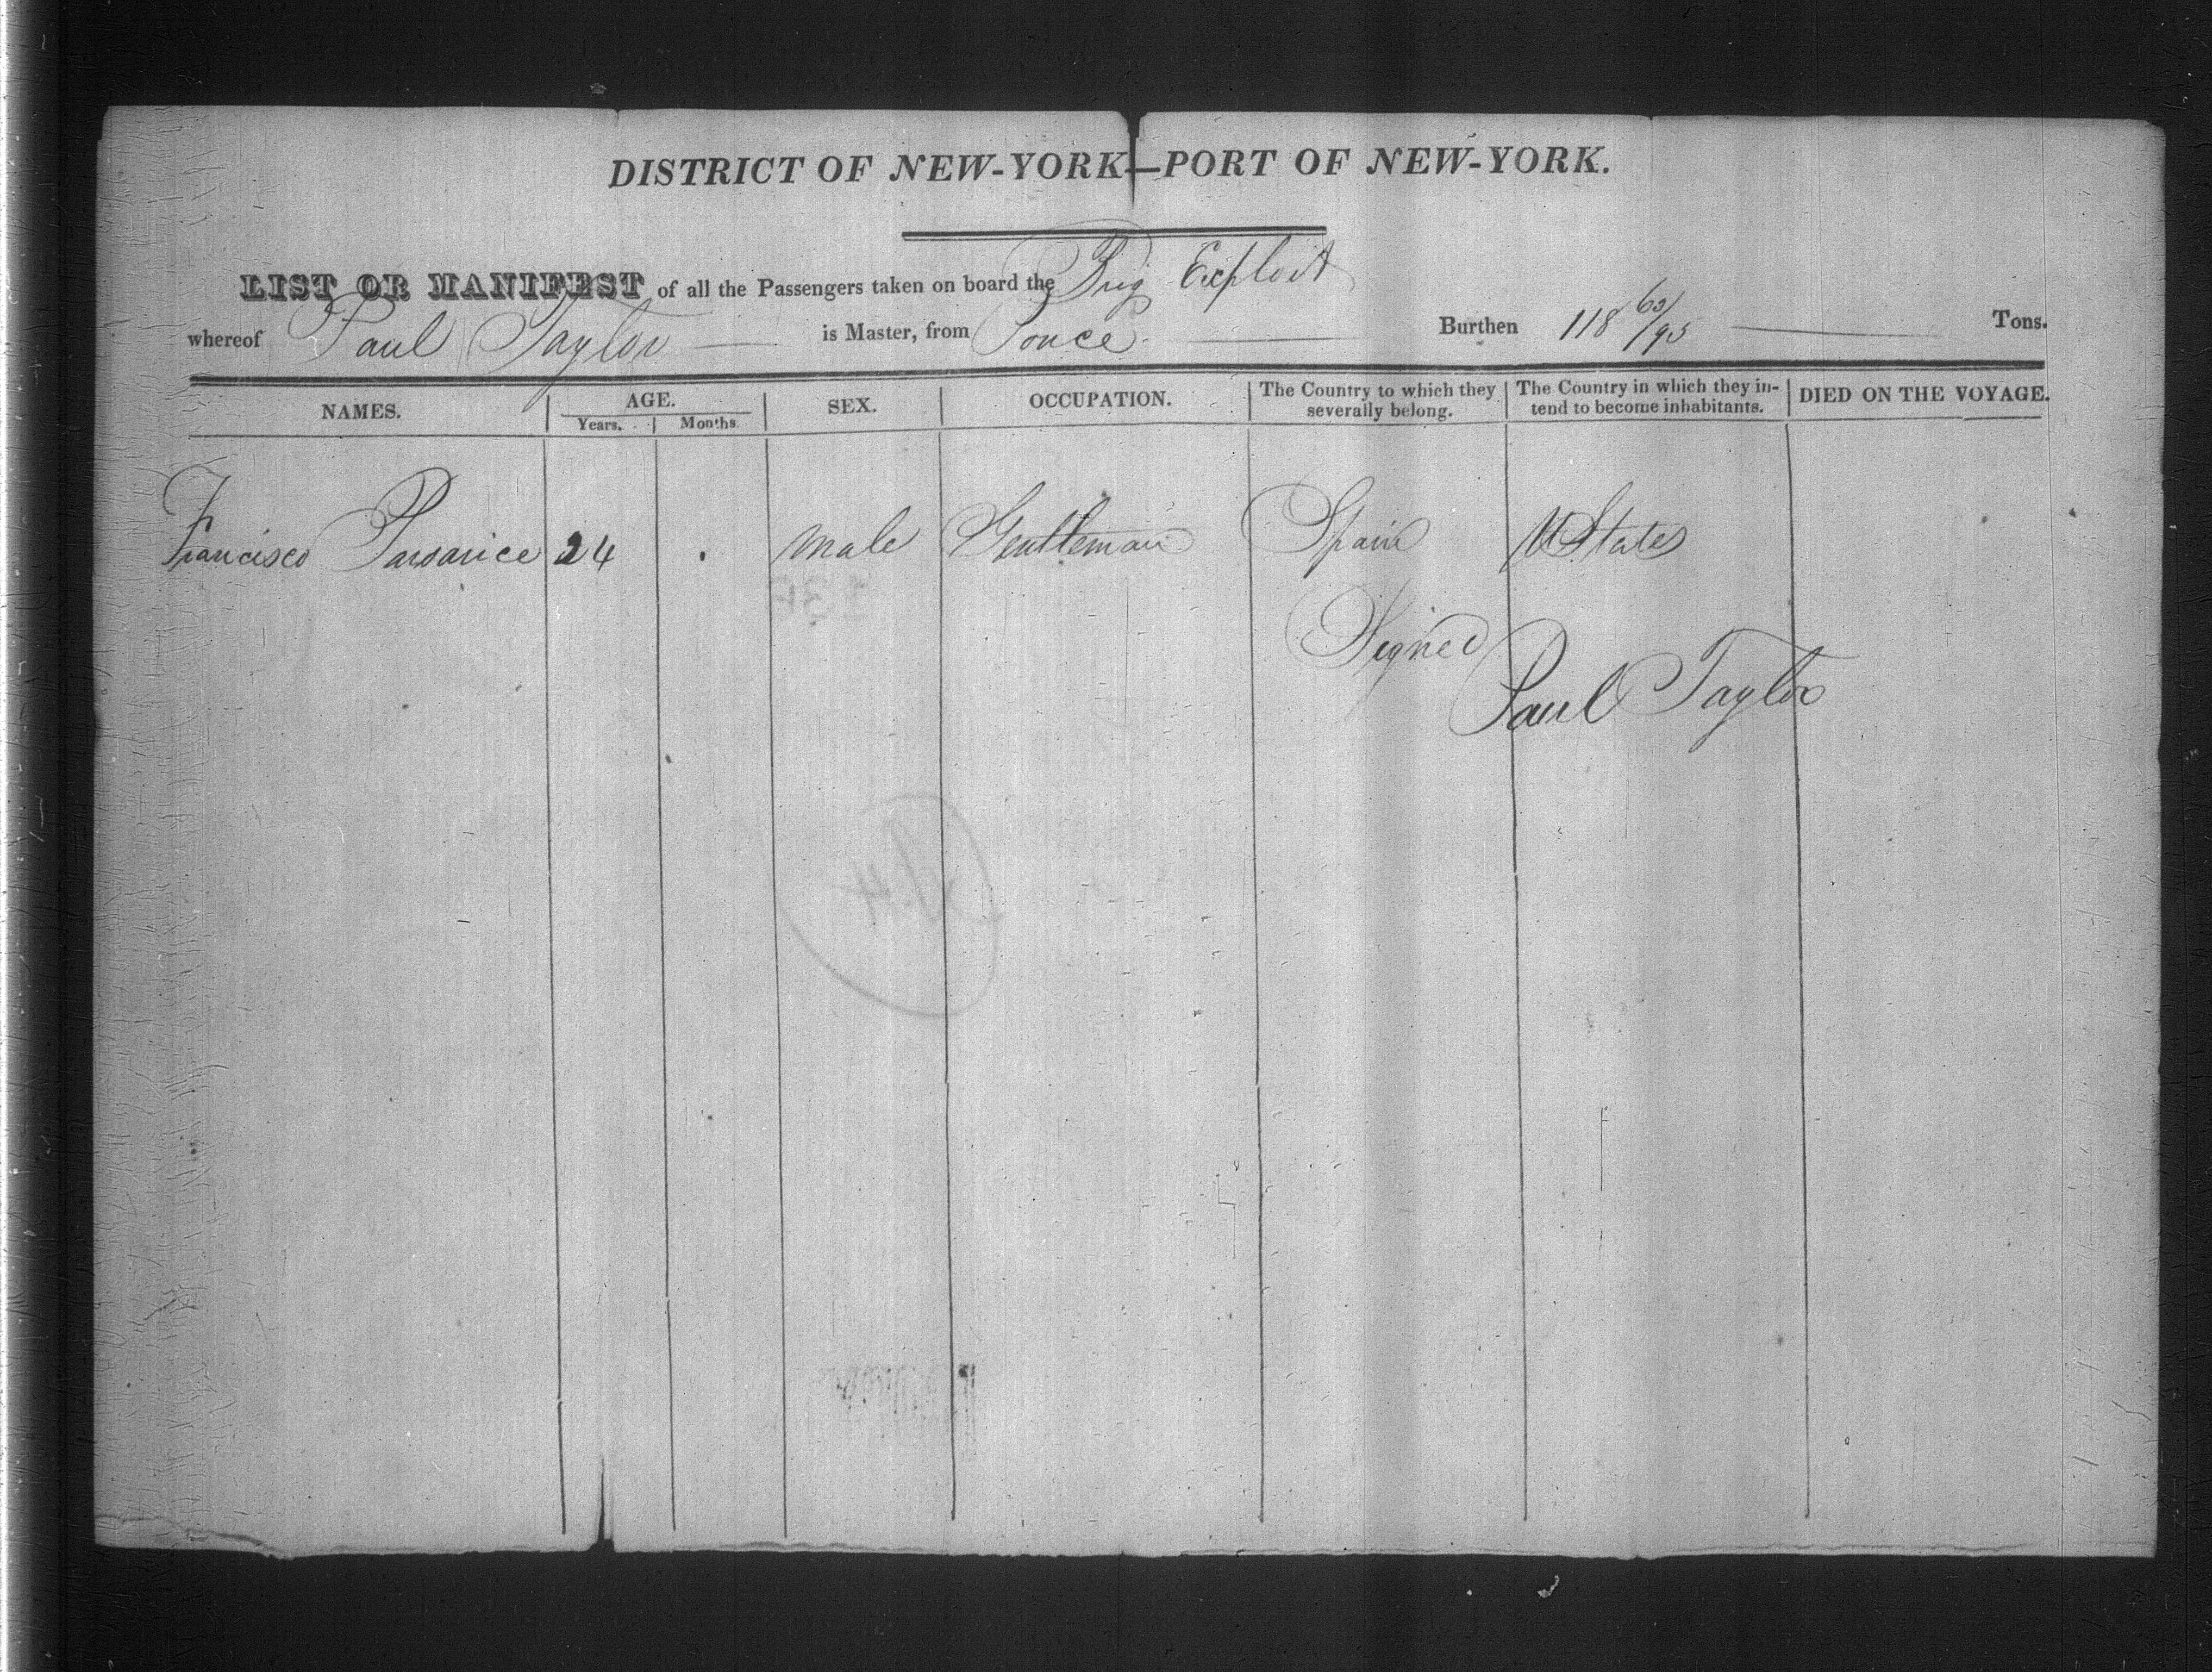 DISTRICT OF NEW-YORK—PORT OF NEW-YORK.
LIST OR MANIFEST of all the Passengers taken on board the Brig Exploit
whereof Paul Taylor is Master, from Ponce Burthen 118 63/95 Tons.
NAMES. AGE. SEX. OCCUPATION. The Country to which they severally belong. The Country in which they in-tend to become inhabitants. DIED ON THE VOYAGE.
Years. Months.
Francisco 24 male Gentleman Spain U States
Signed
Paul Taylor